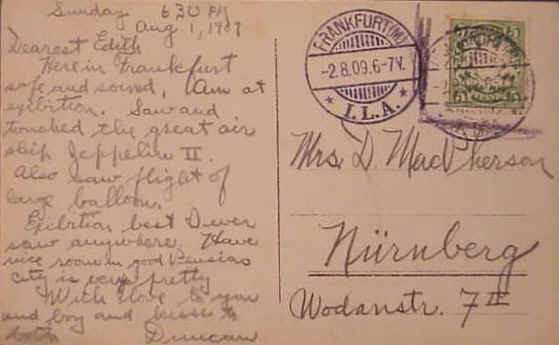 Sunday 630 PM
Aug 1, 1909
Dearest Edith
Here in Frankfurt
safe and sound. Am at
exibition. Saw and
touched the great air
ship Zeppelin II.
Also saw flight of
large balloon.
Exibition best I ever
saw anywhere. Have
nice room in good Pension
city is very pretty
With love to you
and boy and kisses to
both Duncan
FRANKFURT (M)
-2.8.09.6-7V.
* I.L.A. *
5
Mrs. D. MacPherson
Nürnberg
Wodanstr. 7 II